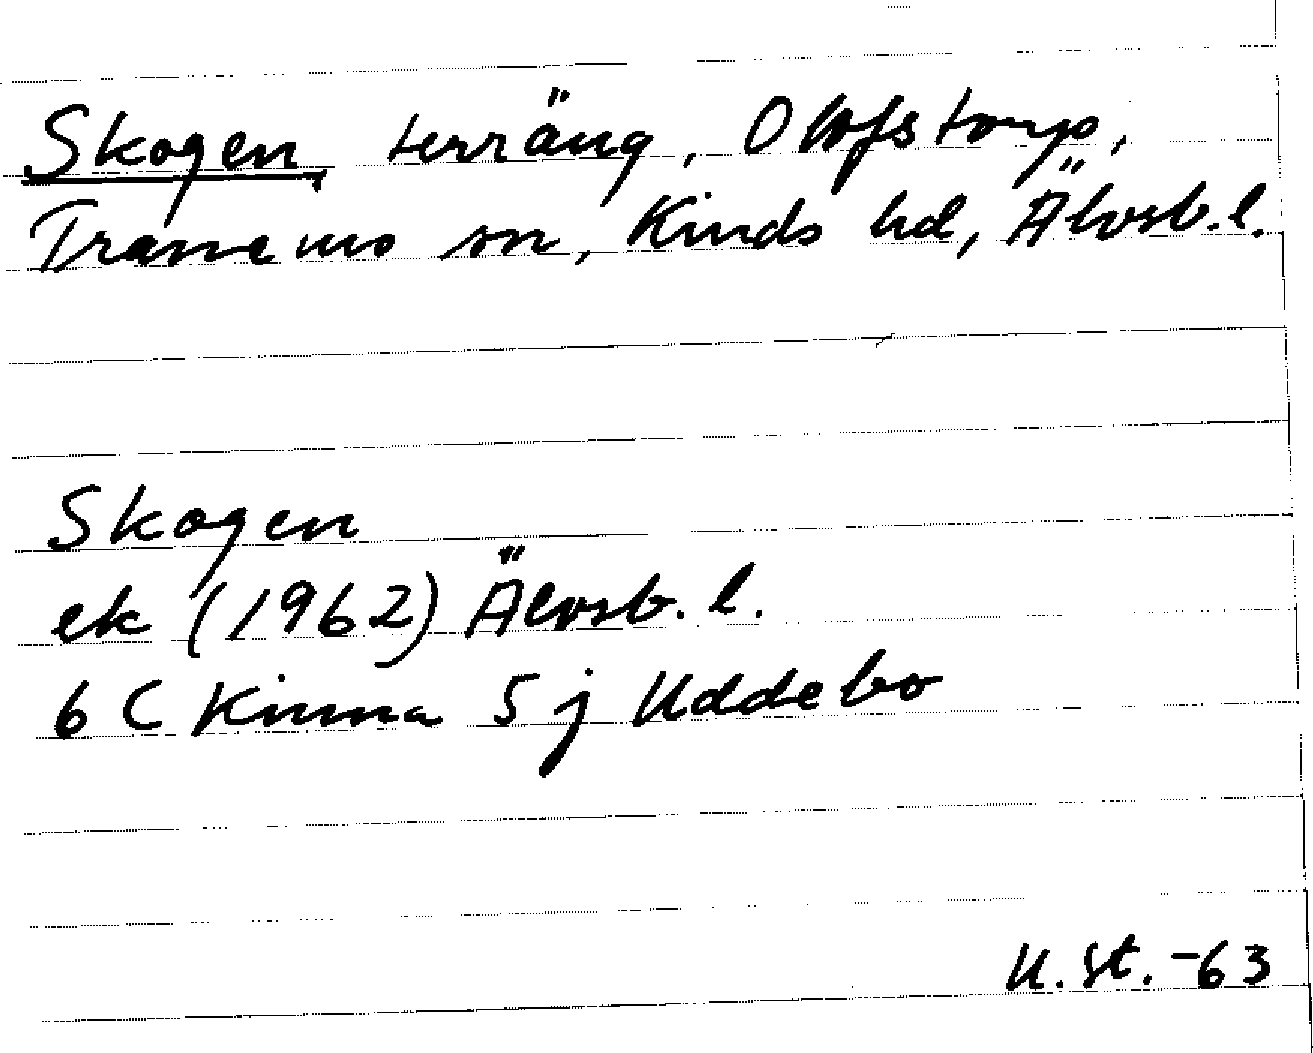 Skogen, terräng, Olofstorp,
Tranemo sn, Kinds hd, Älvsb. l.
Skogen
ek (1962) Älvsb. l.
6 C Kinna 5 j Uddebo
U. St. -63